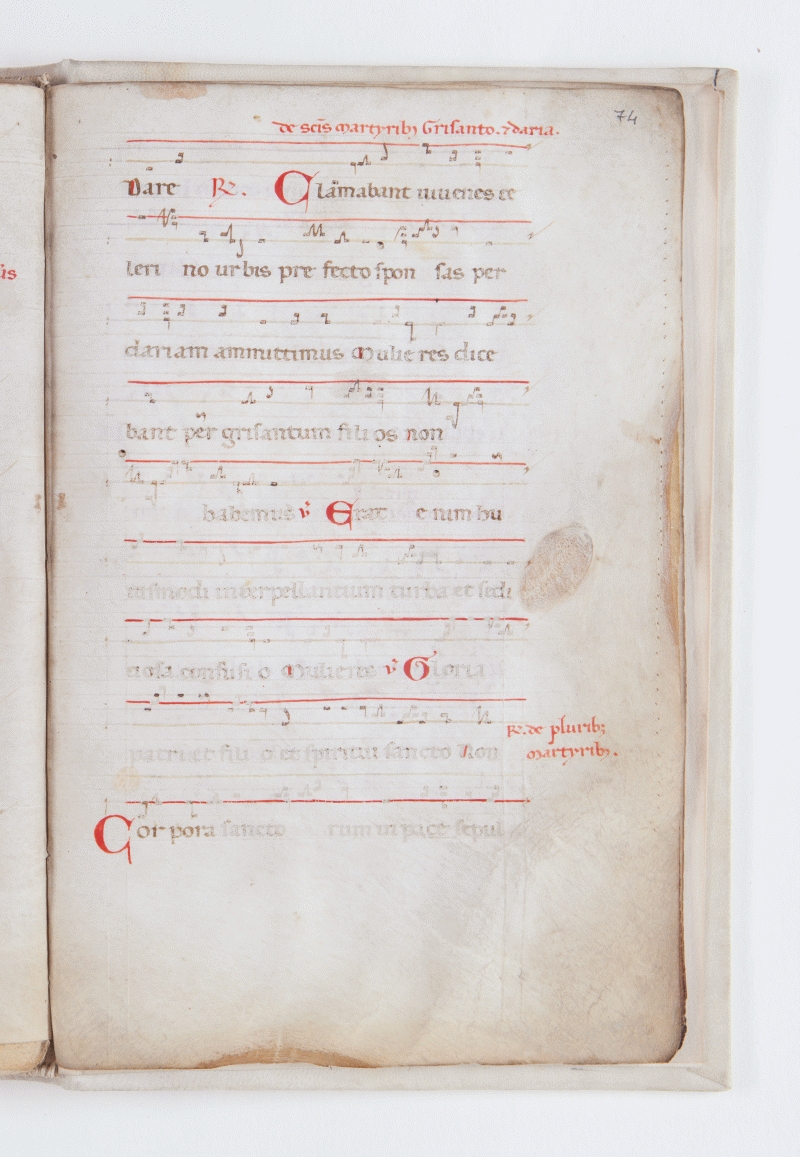 74
de scis martyribȝ Grisanto. ⁊ daria.
Dare R. Clamabant iuuenes ce
leri no urbis pre fecto spon sas per
dariam ammittimus Mulie res dice
bant per grisantum fili os non
habemus v Erat enim hu
iusmodi interpellantium turba et sedi
tiosa confusi o Mulieres v Gloria
patri et fili o et spiritui sancto Non
R. de pluribȝ
martyribȝ.
Cor pora sancto rum in pace sepul